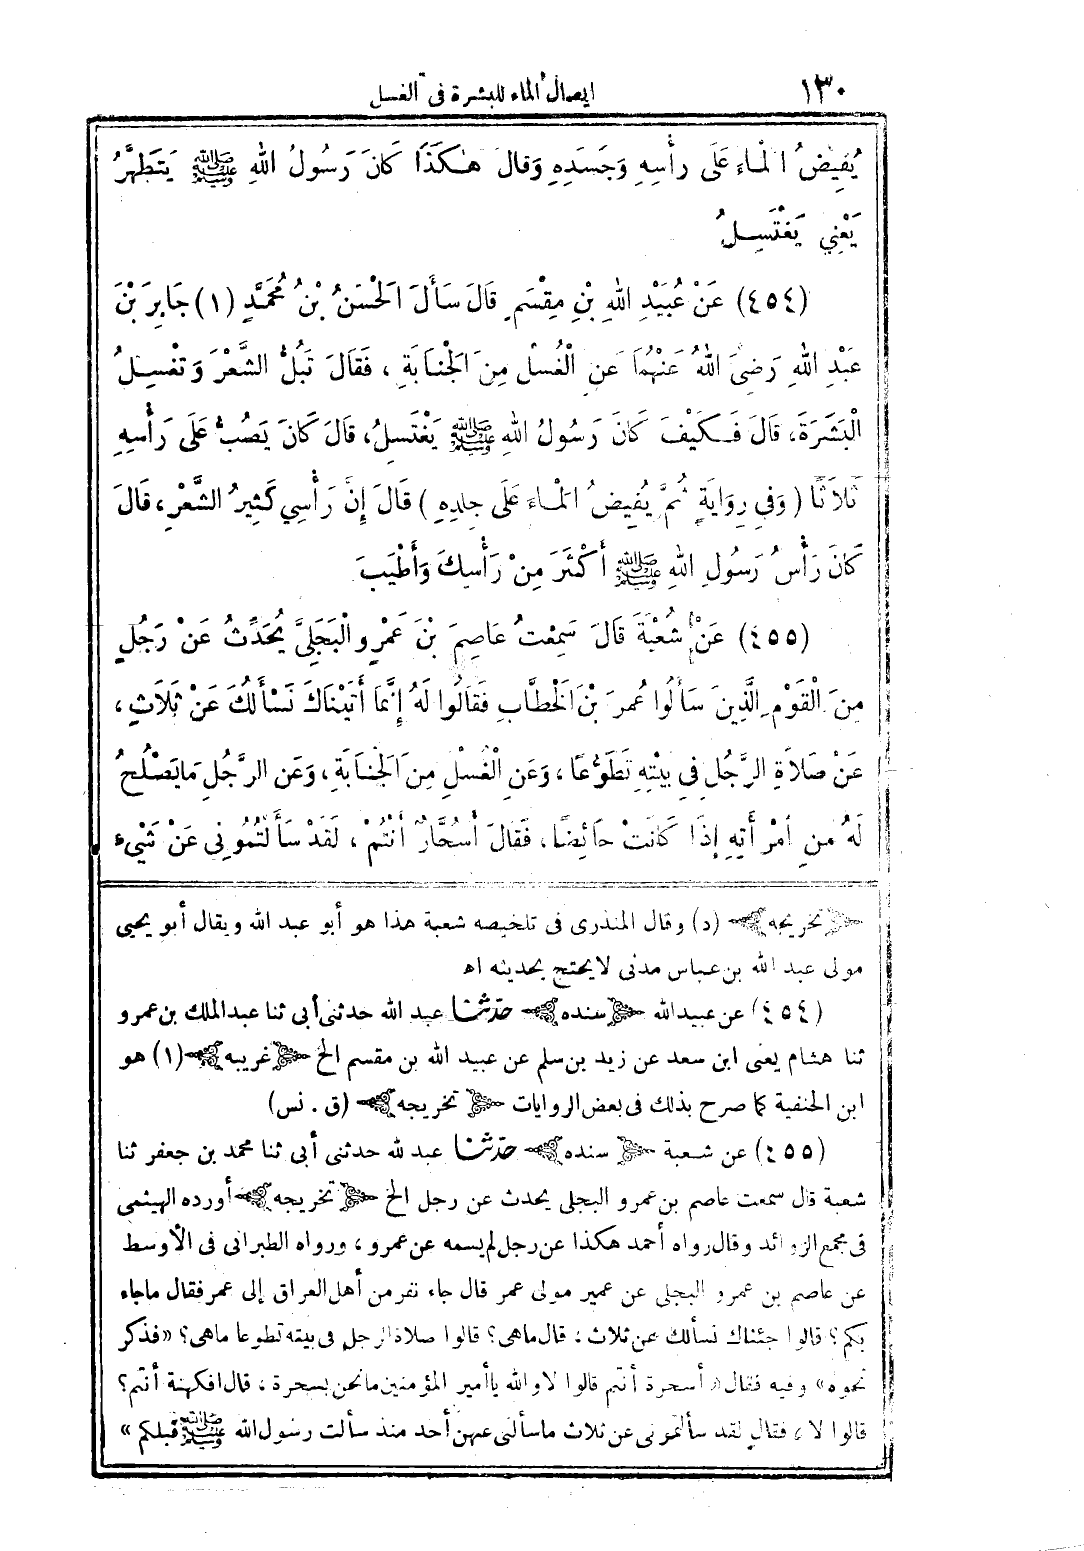 ١٣٠ ايصال الماء للبشرة فى الغسل
يُفِيضُ الْمَاءَ عَلَى رَأْسِهِ وَجَسَدِهِ وَقَالَ هٰكَذَا كَانَ رَسُولُ اللهِ ﷺ يَتَطَهَّرُ
يَعْنِي يَغْتَسِلُ
(٤٥٤) عَنْ عُبَيْدِ اللهِ بْنِ مِقْسَمٍ قَالَ سَأَلَ الْحَسَنُ بْنُ مُحَمَّدٍ (١) جَابِرَ بْنَ
عَبْدِ اللهِ رَضِىَ اللهُ عَنْهُمَا عَنِ الْغُسْلِ مِنَ الْجَنَابَةِ ، فَقَالَ تَبُلُّ الشَّعْرَ وَتَغْسِلُ
الْبَشَرَةَ، قَالَ فَكَيْفَ كَانَ رَسُولُ اللهِ ﷺ يَغْتَسِلُ، قَالَ كَانَ يَصُبُّ عَلَى رَأْسِهِ
ثَلَاثًا (وَفِي رِوَايَةٍ ثُمَّ يُفِيضُ الْمَاءَ عَلَى جِلْدِهِ) قَالَ إِنَّ رَأْسِي كَثِيرُ الشَّعْرِ، قَالَ
كَانَ رَأْسُ رَسُولِ اللهِ ﷺ أَكْثَرَ مِنْ رَأْسِكَ وَأَطْيَبَ
(٤٥٥) عَنْ شُعْبَةَ قَالَ سَمِعْتُ عَاصِمَ بْنَ عَمْرٍو الْبَجَلِيَّ يُحَدِّثُ عَنْ رَجُلٍ
مِنَ الْقَوْمِ الَّذِينَ سَأَلُوا عُمَرَ بْنَ الْخَطَّابِ فَقَالُوا لَهُ إِنَّمَا أَتَيْنَاكَ نَسْأَلُكَ عَنْ ثَلَاثٍ ،
عَنْ صَلَاةِ الرَّجُلِ فِي بَيْتِهِ تَطَوُّعًا ، وَعَنِ الْغُسْلِ مِنَ الْجَنَابَةِ، وَعَنِ الرَّجُلِ مَا يَصْلُحُ
لَهُ مِنِ امْرَأَتِهِ إِذَا كَانَتْ حَائِضًا، فَقَالَ أَسُحَّارٌ أَنْتُمْ ، لَقَدْ سَأَلْتُمُونِى عَنْ شَىْءٍ
﴿تخريجه﴾ (د) وقال المنذرى فى تلخيصه شعبة هذا هو أبو عبد الله ويقال أبو يحيى
مولى عبد الله بن عباس مدنى لا يحتج بحديثه اه
(٤٥٤) عن عبيد الله ﴿سنده﴾ حدّثنا عبد الله حدثنى أبى ثنا عبد الملك بن عمرو
ثنا هشام يعنى ابن سعد عن زيد بن سلم عن عبيد الله بن مقسم الخ ﴿غريبه﴾ (١) هو
ابن الحنفية كما صرح بذلك فى بعض الروايات ﴿تخريجه﴾ (ق . نس)
(٤٥٥) عن شعبة ﴿سنده﴾ حدّثنا عبد لله حدثنى أبى ثنا محمد بن جعفر ثنا
شعبة قال سمعت عاصم بن عمرو البجلى يحدث عن رجل الخ ﴿تخريجه﴾ أورده الهيثمى
فى مجمع الزوائد وقال رواه أحمد هكذا عن رجل لم يسمه عن عمرو ، ورواه الطبرانى فى الأوسط
عن عاصم بن عمرو البجلى عن عمير مولى عمر قال جاء نفر من أهل العراق إلى عمر فقال ما جاء
بكم؟ قالوا جئناك نسألك عن ثلاث ، قال ماهى؟ قالوا صلاة الرجل فى بيته تطوعا ماهى؟ «فذكر
نحوه» وفيه فقال «أسحرة أنتم قالوا لا والله يا أمير المؤمنين ما نحن بسحرة ، قال افكهنة أنتم؟
قالوا لا، فقال لقد سألتمونى عن ثلاث ما سألنى عنهن أحد منذ سألت رسول الله ﷺ قبلكم »